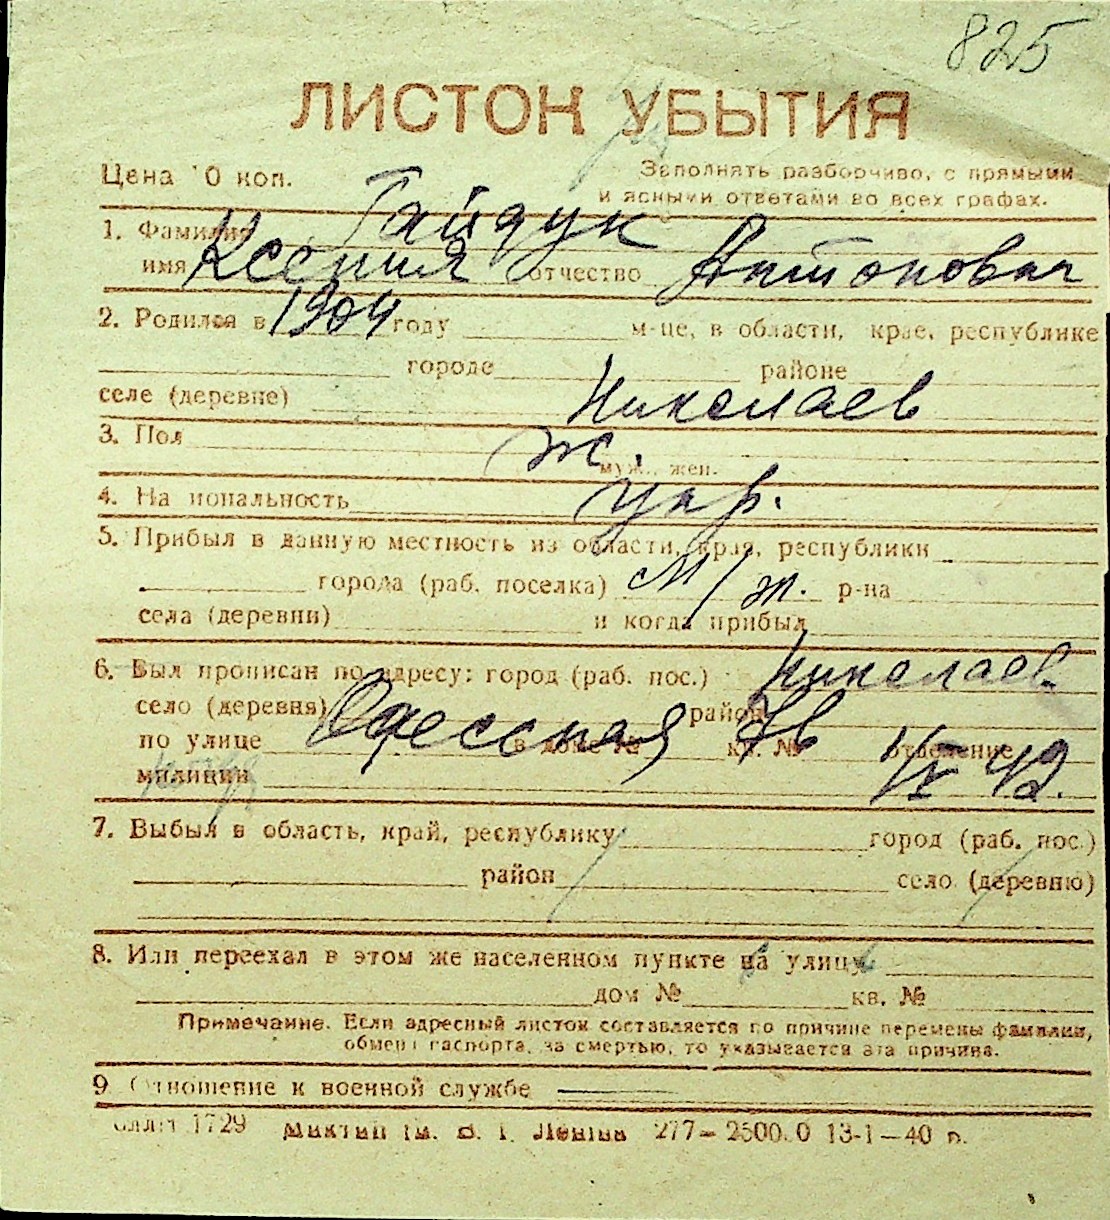 825
ЛИСТОК УБЫТИЯ
Цена 10 коп.
Заполнять разборчиво, с прямыми
и ясными ответами во всех графах.
1. Фамилия Гайдук
имя Ксения отчество Антоновна
2. Родился в 1904 году м-це, в области, крае, республике
городе районе
селе (деревне) Николаев
3. Пол ж.
муж., жен.
4. Национальность укр.
5. Прибыл в данную местность из области, края, республики
города (раб. поселка) м/ж. р-на
села (деревни) и когда прибыл
6. Был прописан по адресу: город (раб. пос.) Николаев
село (деревня) район
по улице Одесская в доме № 7в кв. № отделение
милиции 42.
7. Выбыл в область, край, республику город (раб. пос.)
район село (деревню)
8. Или переехал в этом же населенном пункте на улицу
дом № кв. №
Примечание. Если адресный листок составляется по причине перемены фамилии,
обмена паспорта, за смертью, то указывается эта причина.
9. Отношение к военной службе
1729 им. В. И. Ленина 277— 2500.0 13-1—40 г.